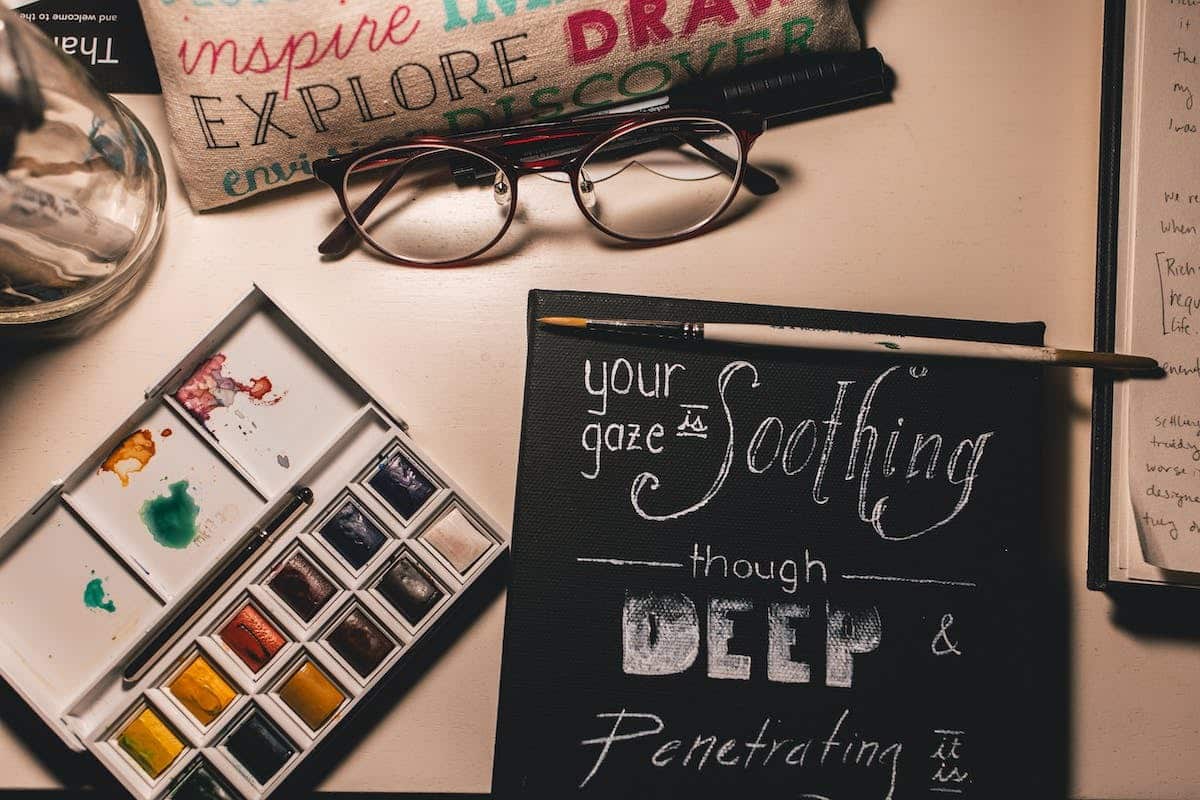 Than
and welcome to the
inspire
DRAW
EXPLORE
DISCOVER
your
gaze is Soothing
though
DEEP &
Penetrating it is
it
the
my
I was
we re
when
Rich
requ
life
settling
worse i
designe
they